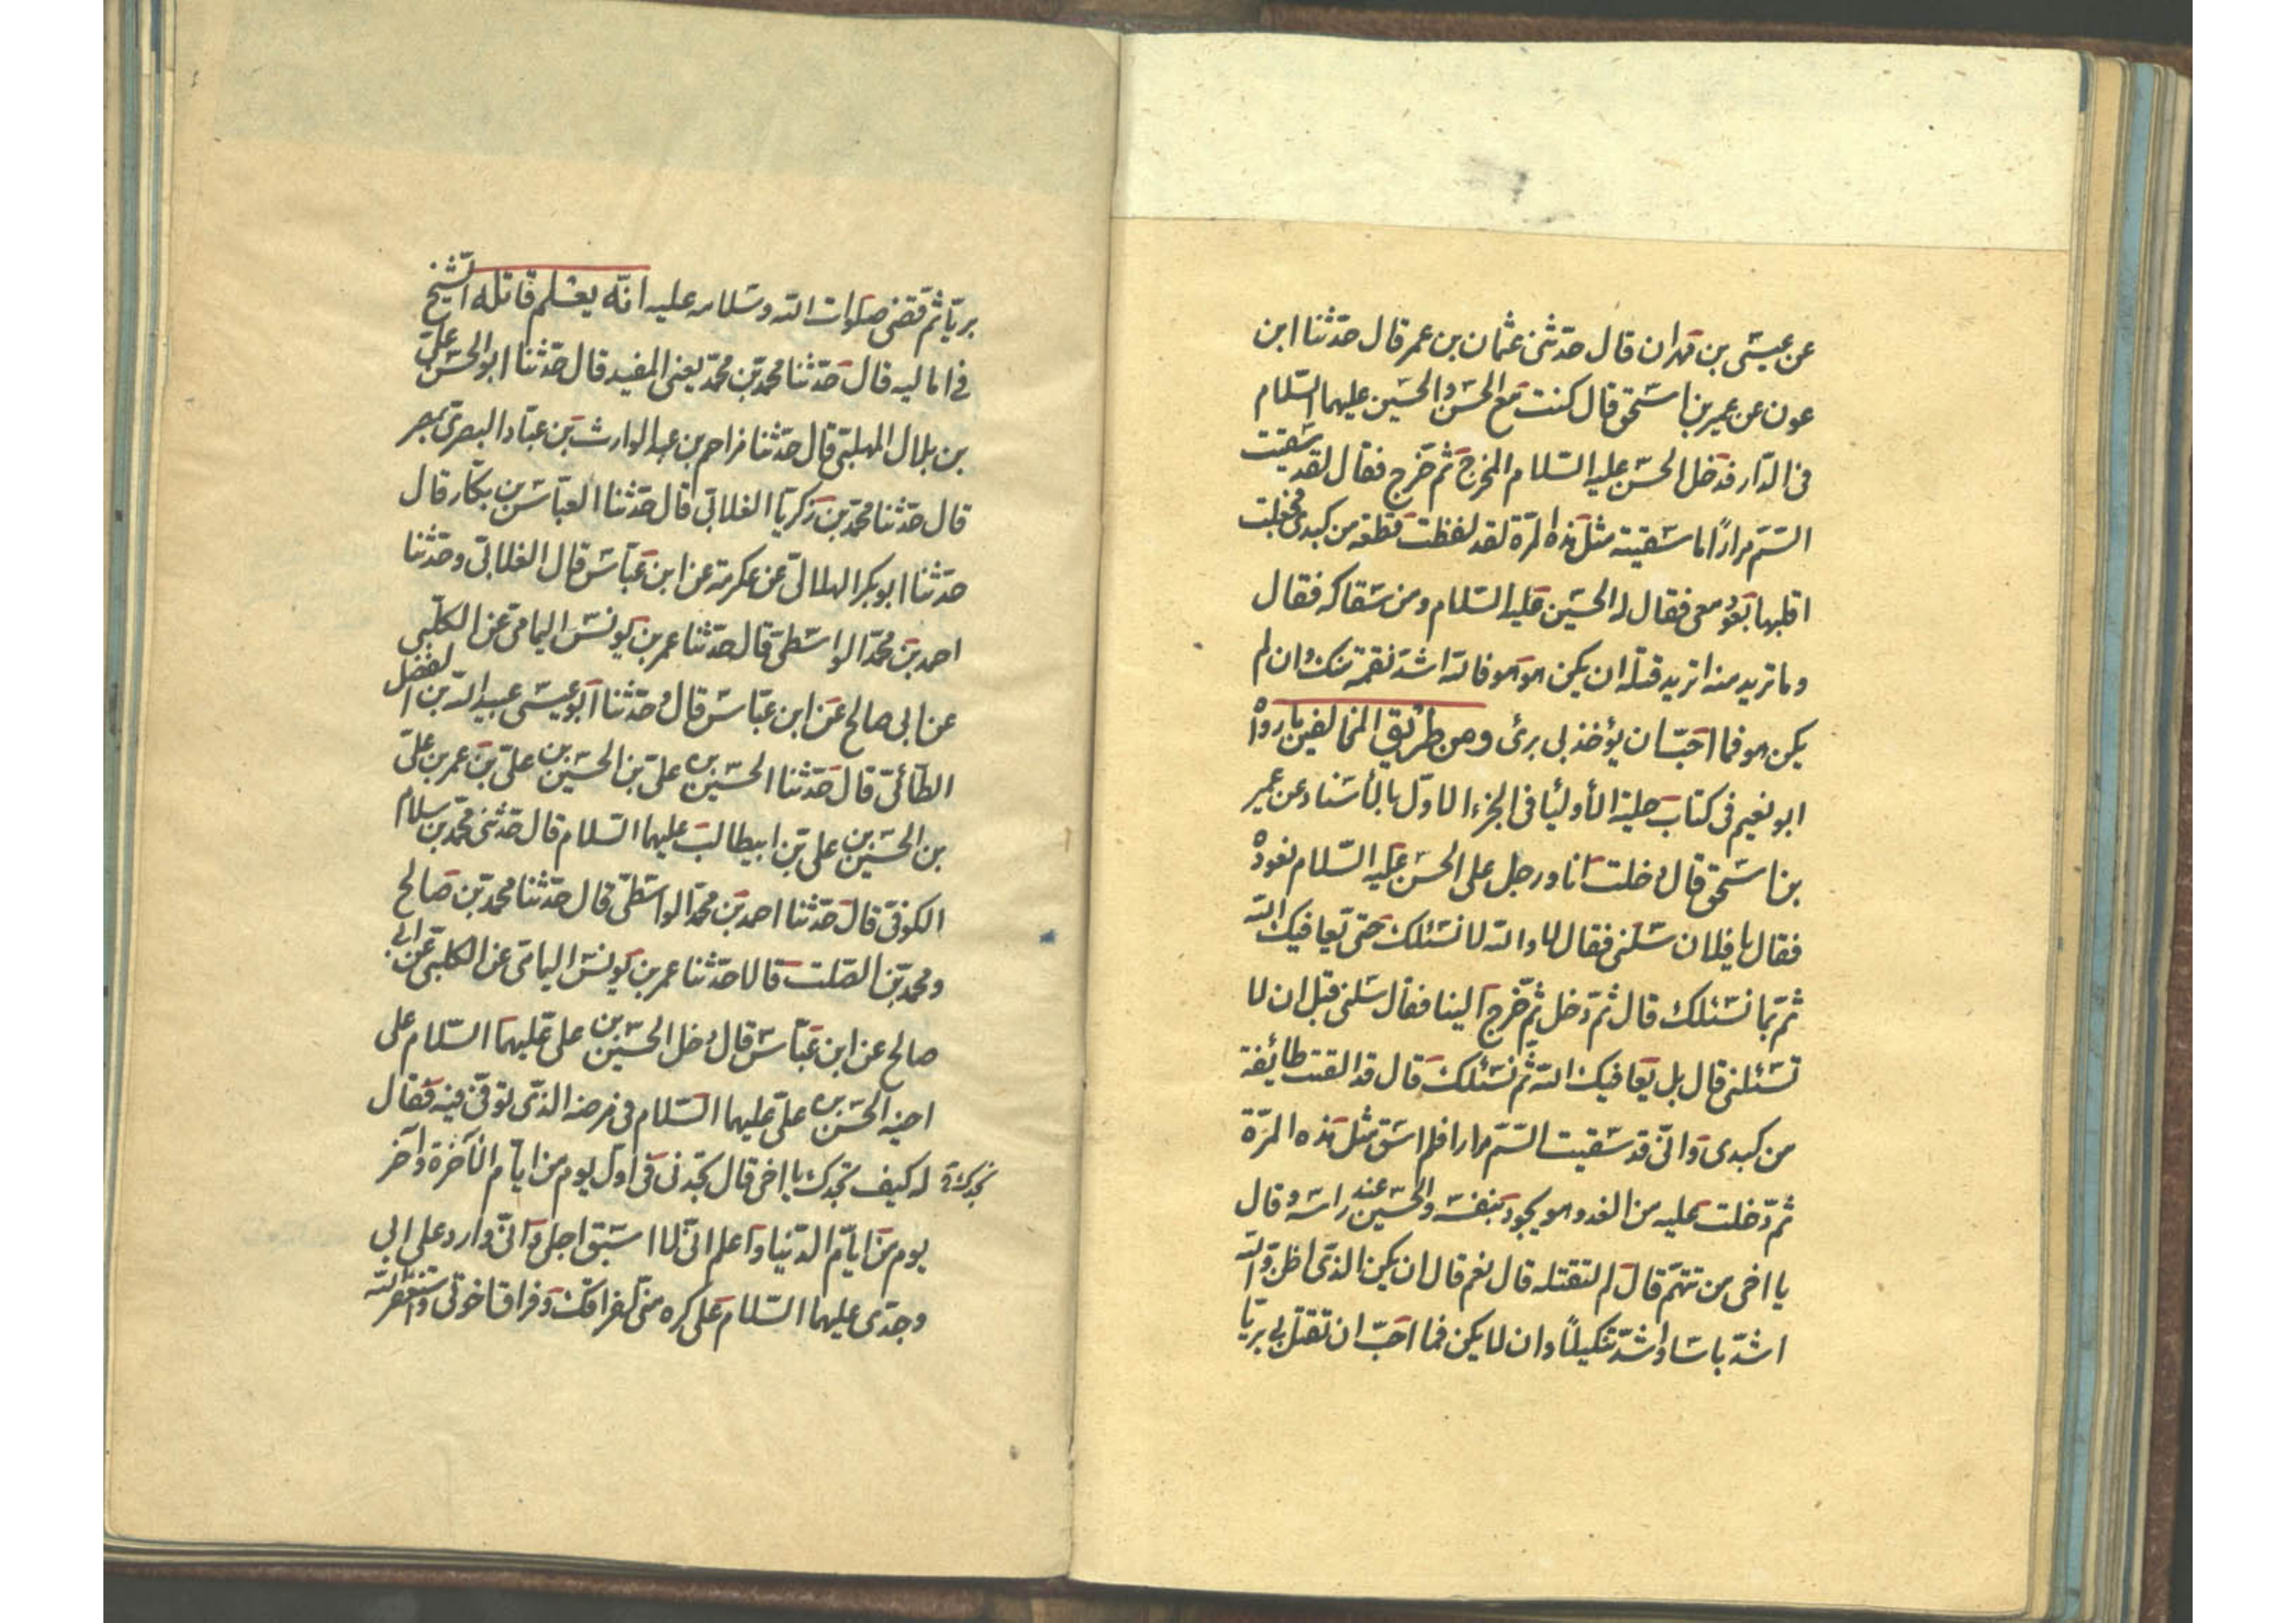 عن عيسى بن مهران قال حدثنى عثمان بن عمر قال حدثنا ابن
عون عن عمير بن اسحق قال كنت مع الحسن والحسين عليهما السلام
فى الدار فدخل الحسن عليه السلام المخرج ثم خرج فقال لقد سقيت
السم مرارًا ما سقيته مثل هذه المرة لقد لفظت قطعة من كبدى فجعلت
اقلبها بعود معى فقال له الحسين عليه السلام ومن سقاكه فقال
وما تريد منه اتريد قتله ان يكن هو هو فالله اشد نقمة منك وان لم
يكن هو فما احب ان يؤخذ بى برئ ومن طريق المخالفين ما رواه
ابو نعيم فى كتاب حلية الأوليا فى الجزء الاول بالأسناد عن عمير
بن اسحق قال دخلت انا ورجل على الحسن عليه السلام نعوده
فقال يا فلان سلنى فقال لا والله لا نسئلك حتى يعافيك الله
ثم نسئلك قال ثم دخل ثم خرج الينا فقال سلنى قبل ان لا
تسئلنى قال بل يعافيك الله ثم نسئلك قال قد القيت طائفة
من كبدى وانى قد سقيت السم مرارا فلم اسق مثل هذه المرة
ثم دخلت عليه من الغد وهو يجود بنفسه والحسين عند راسه وقال
يا اخى من تتهم قال لم لتقتله قال نعم قال ان يكن الذى اظن والله
اشد باسا واشد تنكيلًا وان لا يكن فما احب ان تقتل بى بريّا
بريّا ثم قضى صلوات الله وسلامه عليه انه يعلم قاتله الشيخ
فى اماليه قال حدثنا محمد بن محمد يعنى المفيد قال حدثنا ابو الحسن على
بن بلال المهلبى قال حدثنا مزاحم بن عبد الوارث بن عباد البصرى بمصر
قال حدثنا محمد بن زكريا الغلابى قال حدثنا العباس بن بكار قال
حدثنا ابو بكر الهلالى عن عكرمة عن ابن عباس قال الغلابى وحدثنا
احمد بن محمد الواسطى قال حدثنا عمر بن يونس اليمامى عن الكلبى
عن ابى صالح عن ابن عباس قال وحدثنا ابو عيسى عبيد الله بن الفضل
الطائى قال حدثنا الحسين بن على بن الحسين بن على بن عمر بن على
بن الحسين بن على بن ابيطالب عليهما السلام قال حدثنى محمد بن سلام
الكوفى قال حدثنا احمد بن محمد الواسطى قال حدثنا محمد بن صالح
ومحمد بن الصلت قالا حدثنا عمر بن يونس اليمامى عن الكلبى عن ابى
صالح عن ابن عباس قال دخل الحسين بن على عليهما السلام على
اخيه الحسن بن على عليهما السلام فى مرضه الذى توفى فيه فقال
له كيف تجدك يا اخى قال تجدنى فى اول يوم من ايام الآخرة وآخر
يوم من ايام الدنيا واعلم انى لا اسبق اجلى وانى وارد على ابى
وجدى عليهما السلام على كره منى لفراقك وفراق اخوتى واستغفر الله